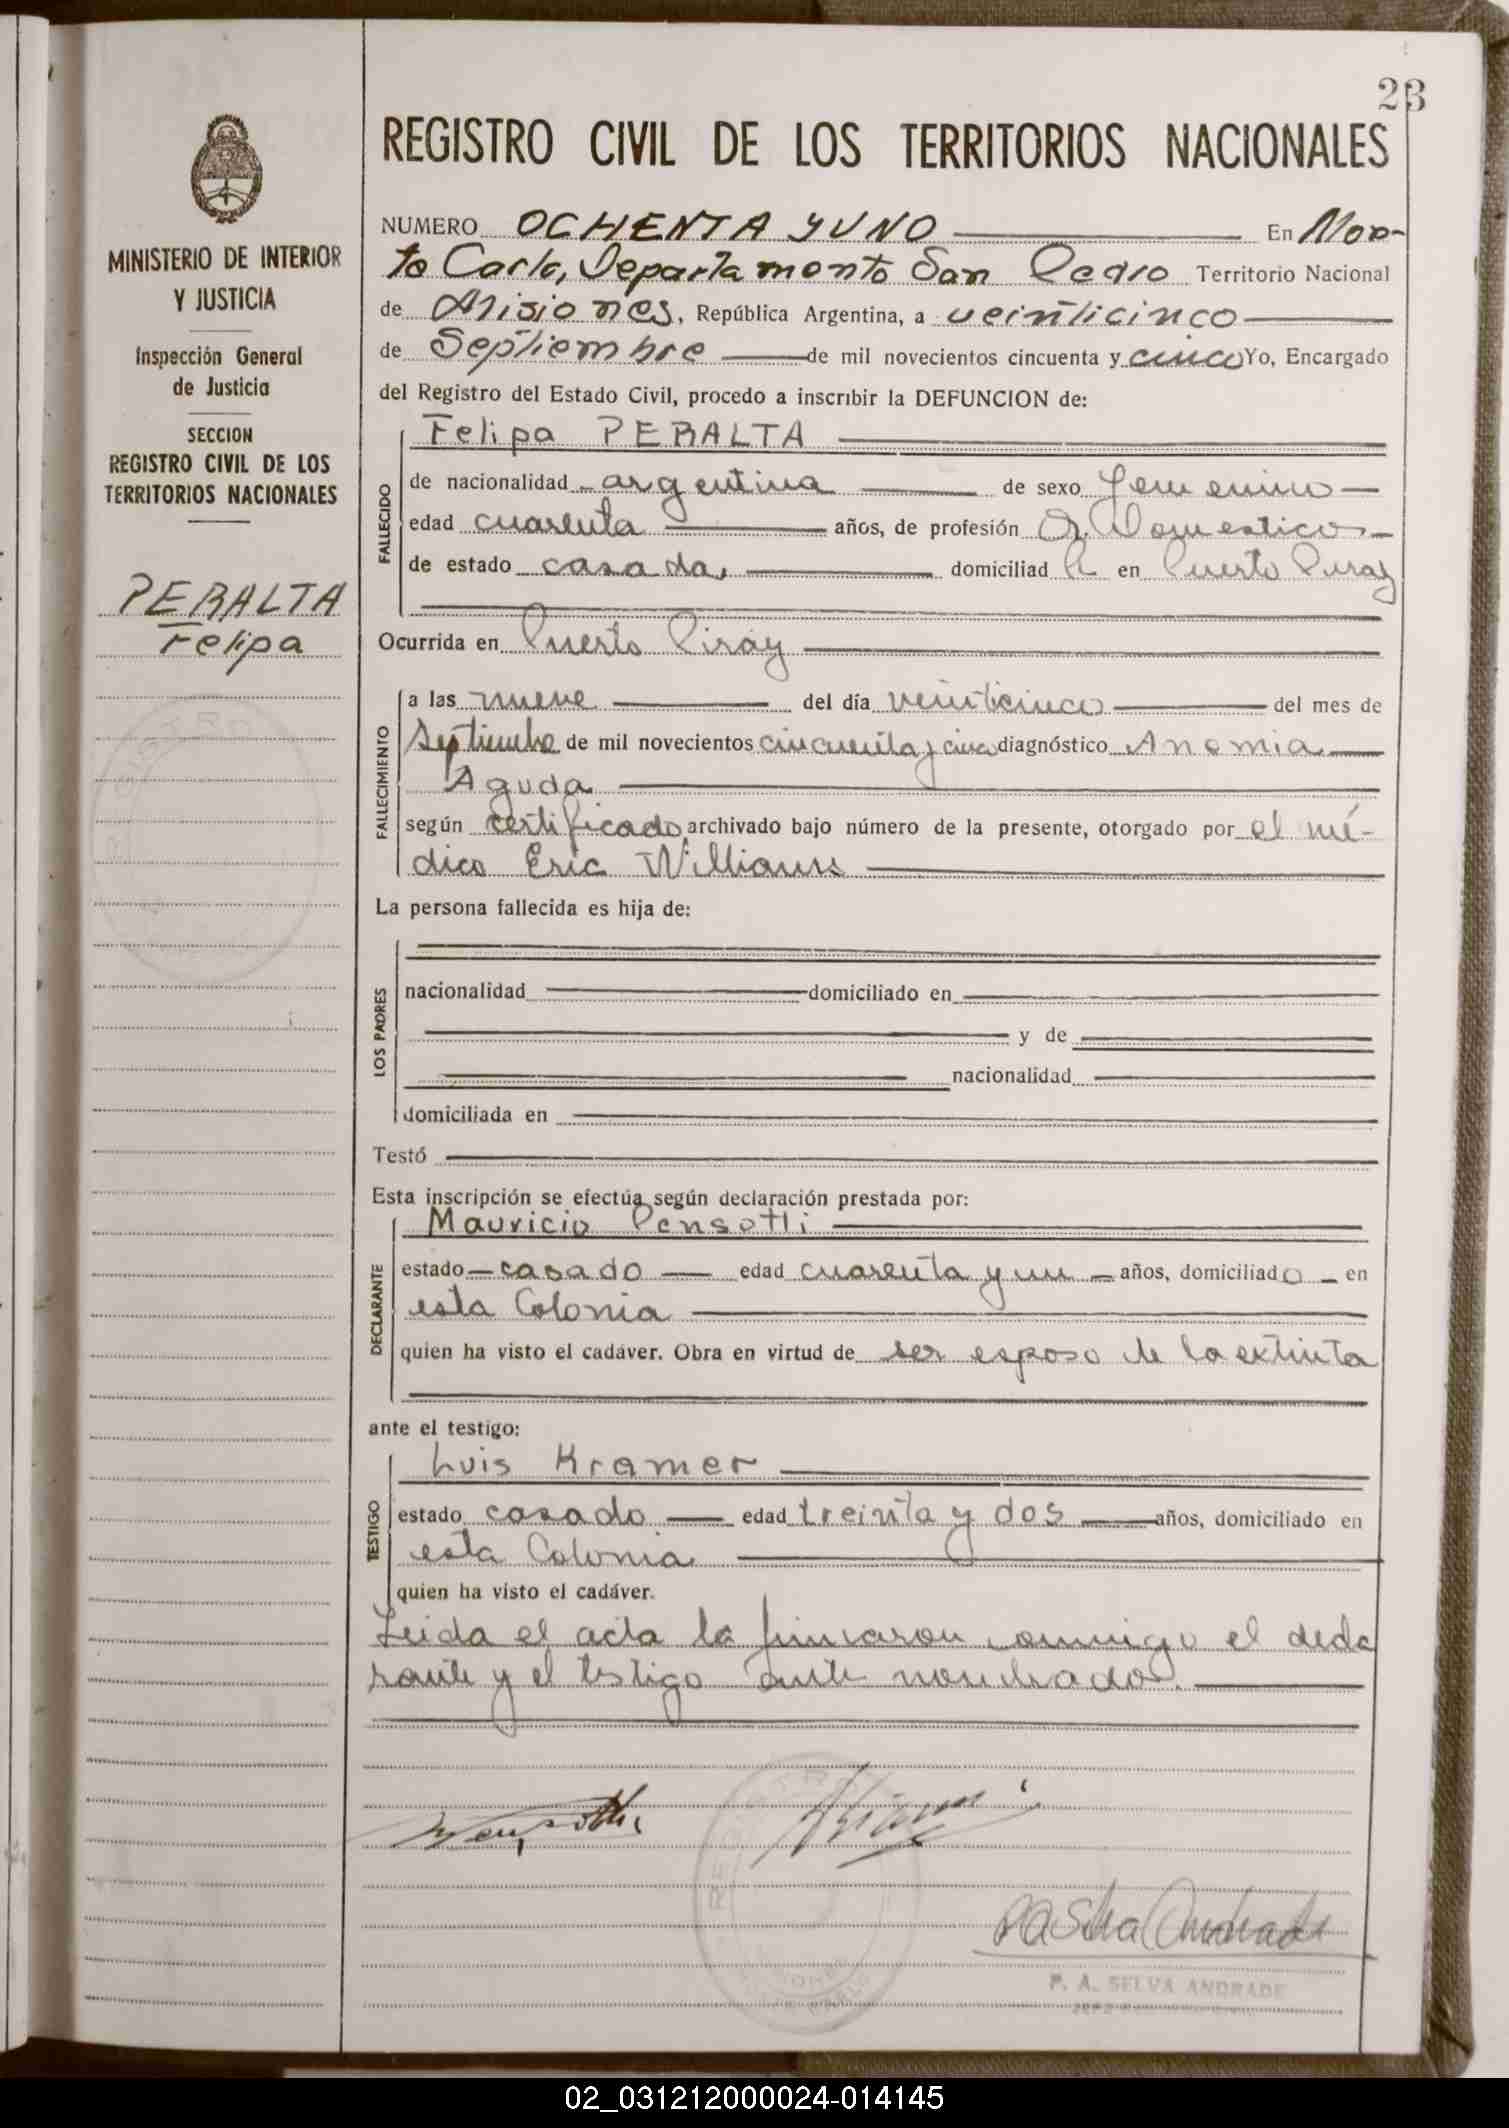 23
REGISTRO CIVIL DE LOS TERRITORIOS NACIONALES
MINISTERIO DE INTERIOR
Y JUSTICIA
Inspección General
de Justicia
SECCION
REGISTRO CIVIL DE LOS
TERRITORIOS NACIONALES
PERALTA
Felipa
NUMERO OCHENTA Y UNO En Mon-
te Carlo, Departamento San Pedro Territorio Nacional
de Misiones, República Argentina, a veinticinco
de Septiembre de mil novecientos cincuenta y cinco Yo, Encargado
del Registro del Estado Civil, procedo a inscribir la DEFUNCION de:
Felipa PERALTA
FALLECIDO
de nacionalidad argentina de sexo femenino
edad cuarenta años, de profesión Q. Domesticos
de estado casada, domiciliad a en Puerto Piray
Ocurrida en Puerto Piray
FALLECIMIENTO
a las nueve del día veinticinco del mes de
Septiembre de mil novecientos cincuenta y cinco diagnóstico Anemia
Aguda
según certificado archivado bajo número de la presente, otorgado por el mé-
dico Eric Williams
La persona fallecida es hija de:
LOS PADRES
nacionalidad domiciliado en
y de
nacionalidad
domiciliada en
Testó
Esta inscripción se efectúa según declaración prestada por:
Mauricio Pensotti
DECLARANTE
estado casado edad cuarenta y un años, domiciliado en
esta Colonia
quien ha visto el cadáver. Obra en virtud de ser esposo de la extinta
ante el testigo:
Luis Kramer
TESTIGO
estado casado edad treinta y dos años, domiciliado en
esta Colonia
quien ha visto el cadáver.
Leida el acta la firmaron conmigo el decla
rante y el testigo ante nombrados.
P. A. SELVA ANDRADE
02_031212000024-014145